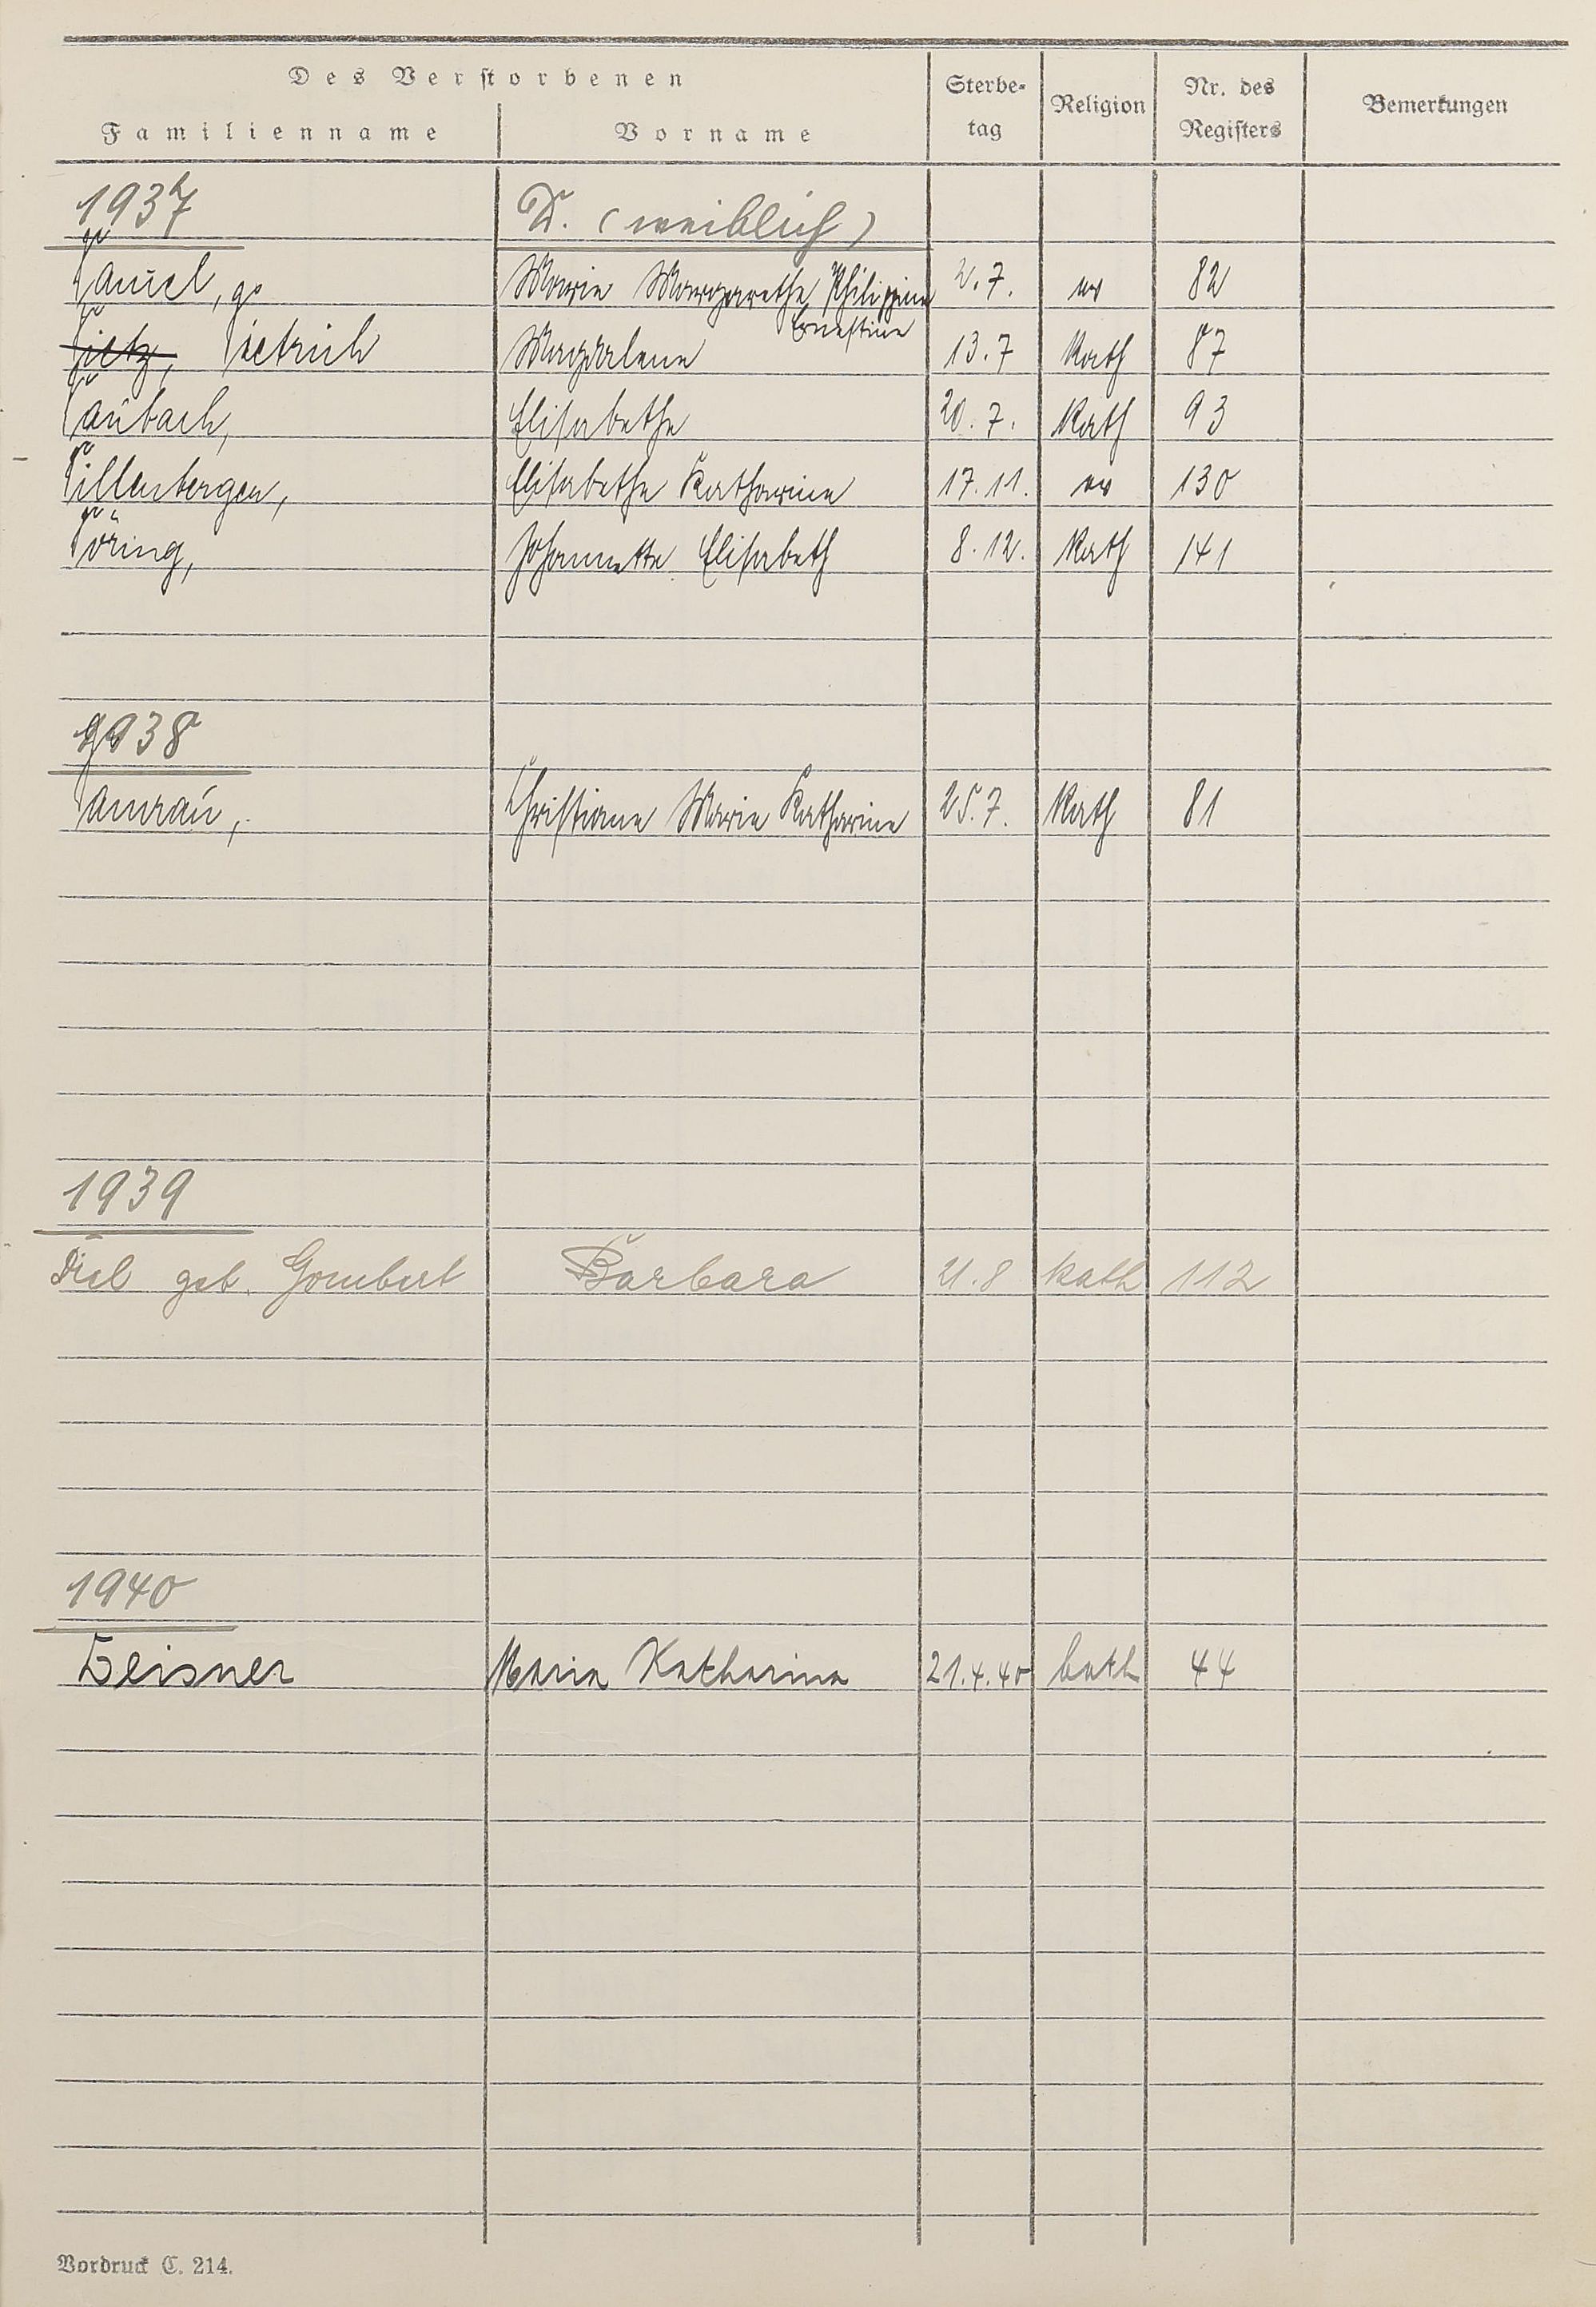 Des Verstorbenen
Familienname Vorname Sterbe-tag Religion Nr. des Registers Bemerkungen
1937 D. (weiblich)
Dauel, Marie Margarethe Philippine 2.7. ev 82
Ernestine
Dietz, Dietrich Magdalena 13.7 Kath 87
Daubach, Elisabethe 20.7. Kath 93
Dillenberger, Elisabethe Katharine 17.11. ev 130
Döring, Johannette Elisabeth 8.12. Kath 141
1938
Damrau, Christiane Marie Katharine 25.7. Kath 81
1939
Diel geb. Gombert Barbara 21.8 kath 112
1940
Deisner Maria Katharina 21.4.40 kath 44
Vordruck C. 214.